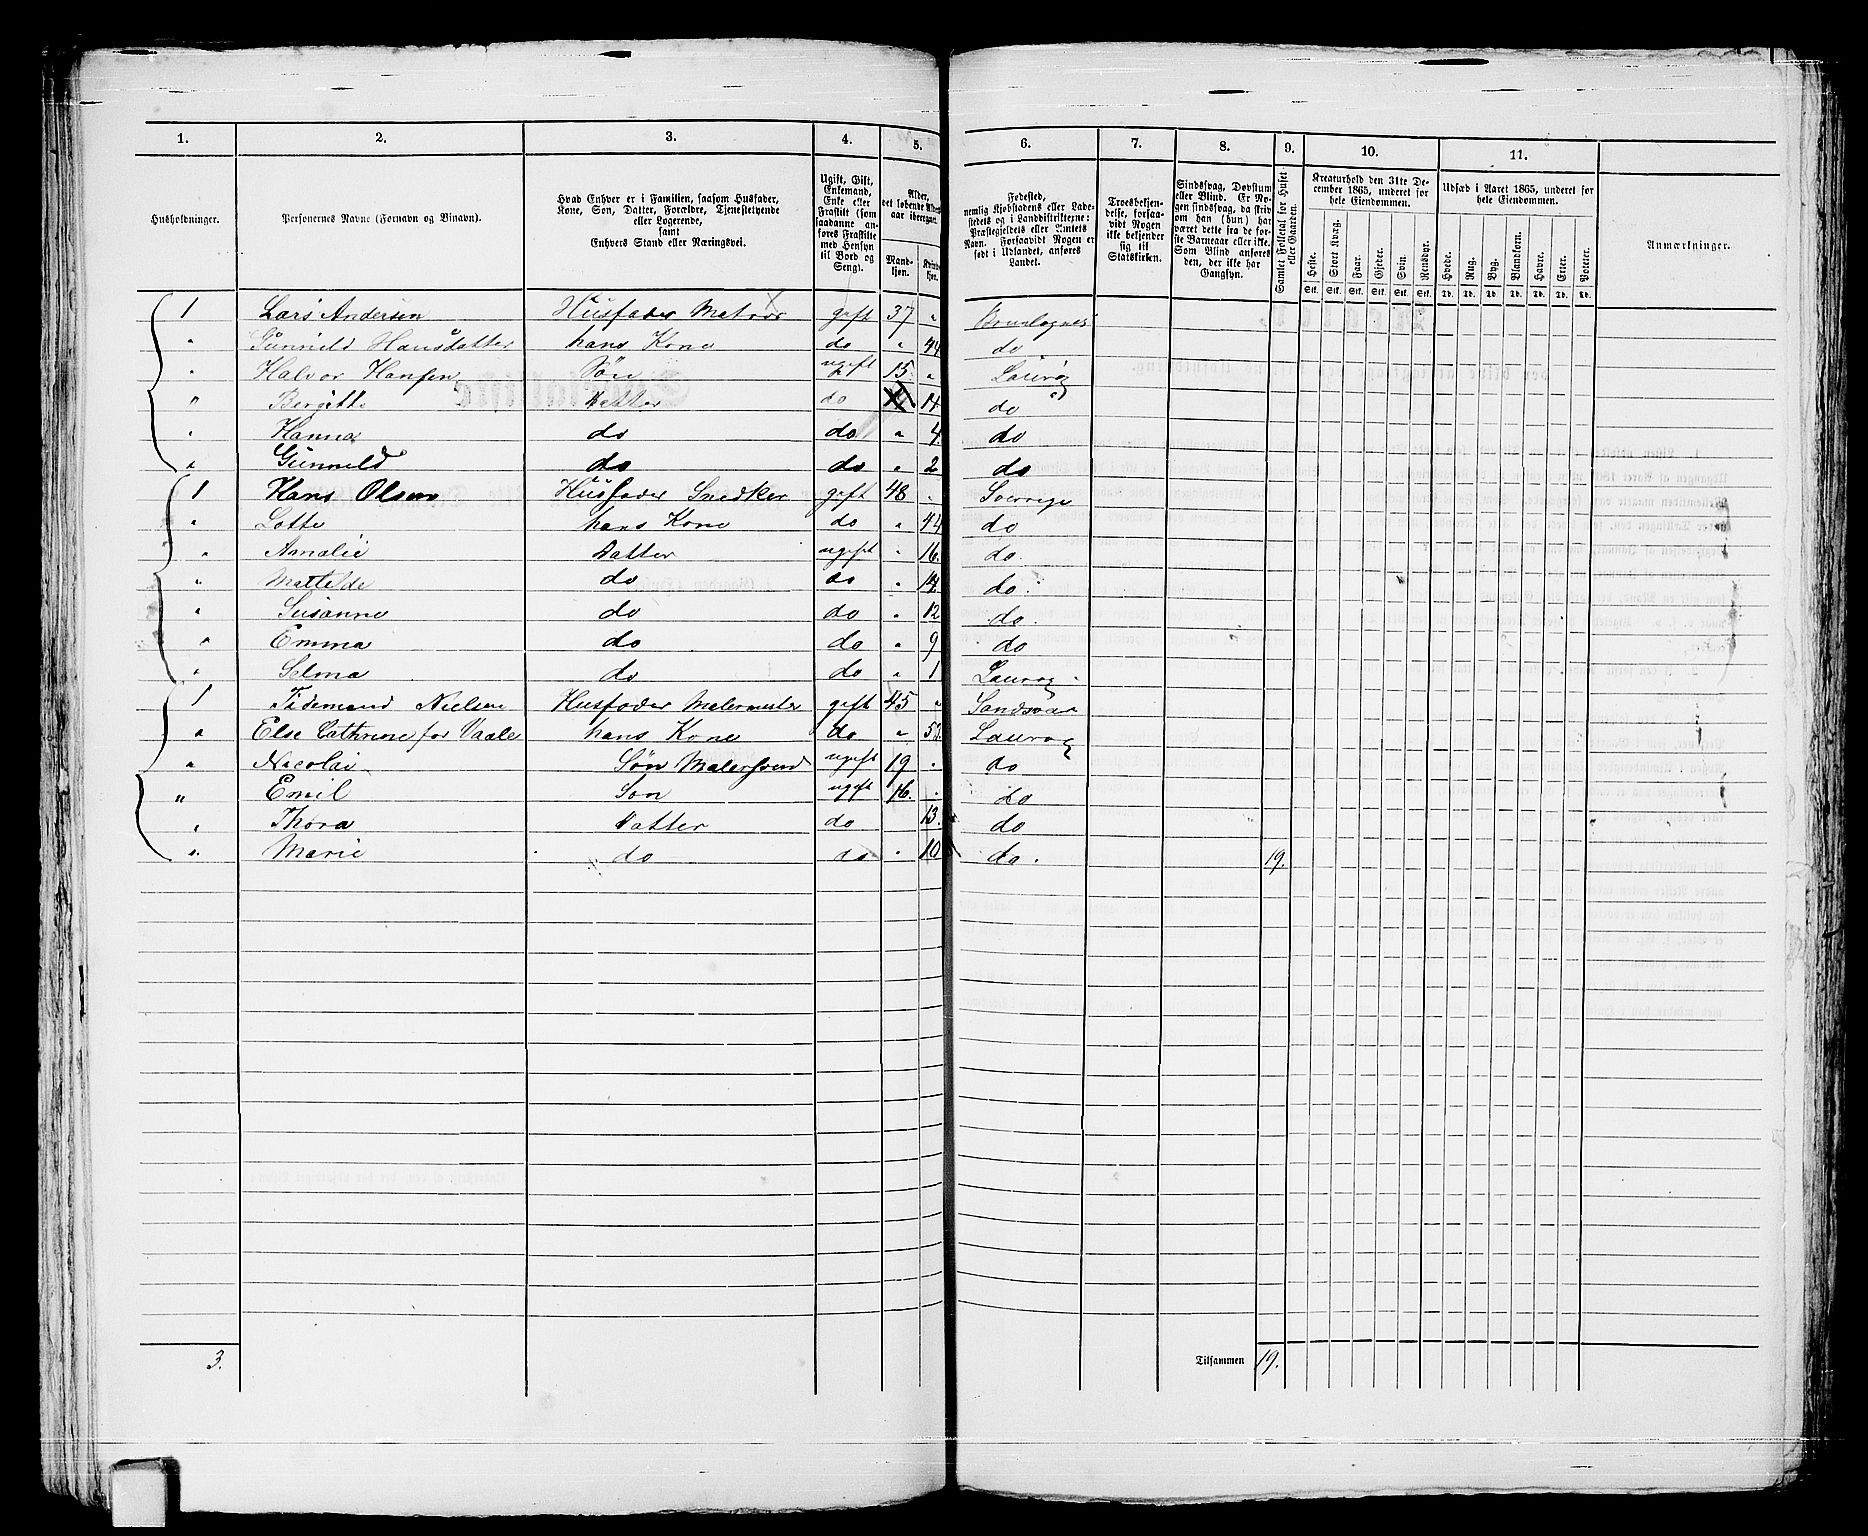 1. 2. 3. 4. 5. 6. 7. 8. 9. 10. 11.
Husholdninger.
Personernes Navne (Fornavn og Binavn).
Hvad Enhver er i Familien, saasom Husfader,
Kone, Søn, Datter, Forældre, Tjenestetyende
eller Logerende,
samt
Enhvers Stand eller Næringsvei.
Ugift, Gift,
Enkemand,
Enke eller
Fraskilt (som
saadanne an-
føres Fraskilte
med Hensyn
til Bord og
Seng).
Alder,
det løbende Alders-
aar iberegnet.
Mand-
kjøn.
Kvinde-
kjøn.
Fødested,
nemlig Kjøbstadens eller Lade-
stedets og i Landdistrikterne:
Præstegjeldets eller Amtets
Navn. Forsaavidt Nogen er
født i Udlandet, anføres
Landet.
Troesbekjen-
delse, forsaa-
vidt Nogen
ikke bekjender
sig til
Statskirken.
Sindssvag, Døvstum
eller Blind. Er No-
gen sindssvag, da skriv
om han (hun) har
været dette fra de før-
ste Barneaar eller ikke.
Som Blind anføres
den, der ikke har
Gangsyn.
Samlet Folketal for Huset
eller Gaarden.
Kreaturhold den 31te De-
cember 1865, underet for
hele Eiendommen.
Heste. Stort Kvæg. Faar. Gjeder. Svin. Rensdyr.
Stk. Stk. Stk. Stk. Stk. Stk.
Udsæd i Aaret 1865, underet for
hele Eiendommen.
Hvede. Rug. Byg. Blandkorn. Havre. Erter. Poteter.
Td. Td. Td. Td. Td. Td. Td.
Anmærkninger.
1 Lars Andersen Husfader Matros gift 37 " Brunlagnes
" Gunnild Hansdatter hans Kone do " 44 do
" Halvor Hansen Søn ugift 15 " Laurvig
" Bergitte Datter do 14 do
" Hanna do do " 4 do
" Gunnild do do " 2 do
1 Hans Olsen Husfader Snedker gift 48 " Sverrige
" Lotte hans Kone do " 44 do
" Amalie Datter ugift " 16 do
" Matilde do do " 14 do
" Susanne do do " 12 do
" Emma do do " 9 do
" Selma do do " 1 Laurvig
1 Tidemand Nielsen Husfader Malermester gift 45 " Sandsvær
" Else Cathrine for Vaale hans Kone do " Laurvig
" Nicolai Søn Malersvend ugift 19 " do
" Emil Søn ugift 16 " do
" Thora Datter do 13 do
" Marie do do " 10 do 19.
3. Tilsammen 19.